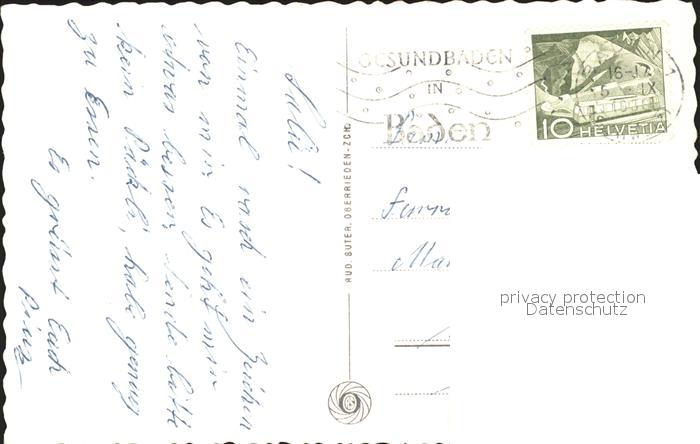 Salü!
Einmal rasch ein Zeichen
von mir. Es geht mir
schon besser. Sende bitte
kein Päckli, habe genug
zu Essen.
Es grüsst Euch
RUD. SUTER, OBERRIEDEN-ZCH.
GESUNDBADEN
IN
Baden
16-17
IX
10 HELVETIA
Fam
privacy protection
Datenschutz